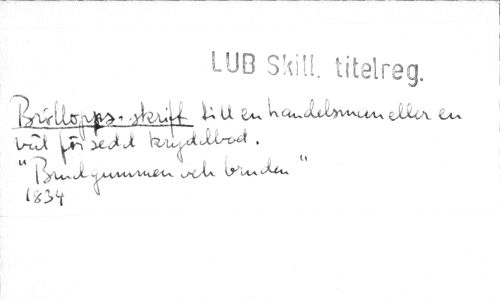 LUB Skill. titelreg.
Bröllops-skrift till en handelsman eller en
väl försedd kryddbod.
"Brudgummen och bruden"
1834